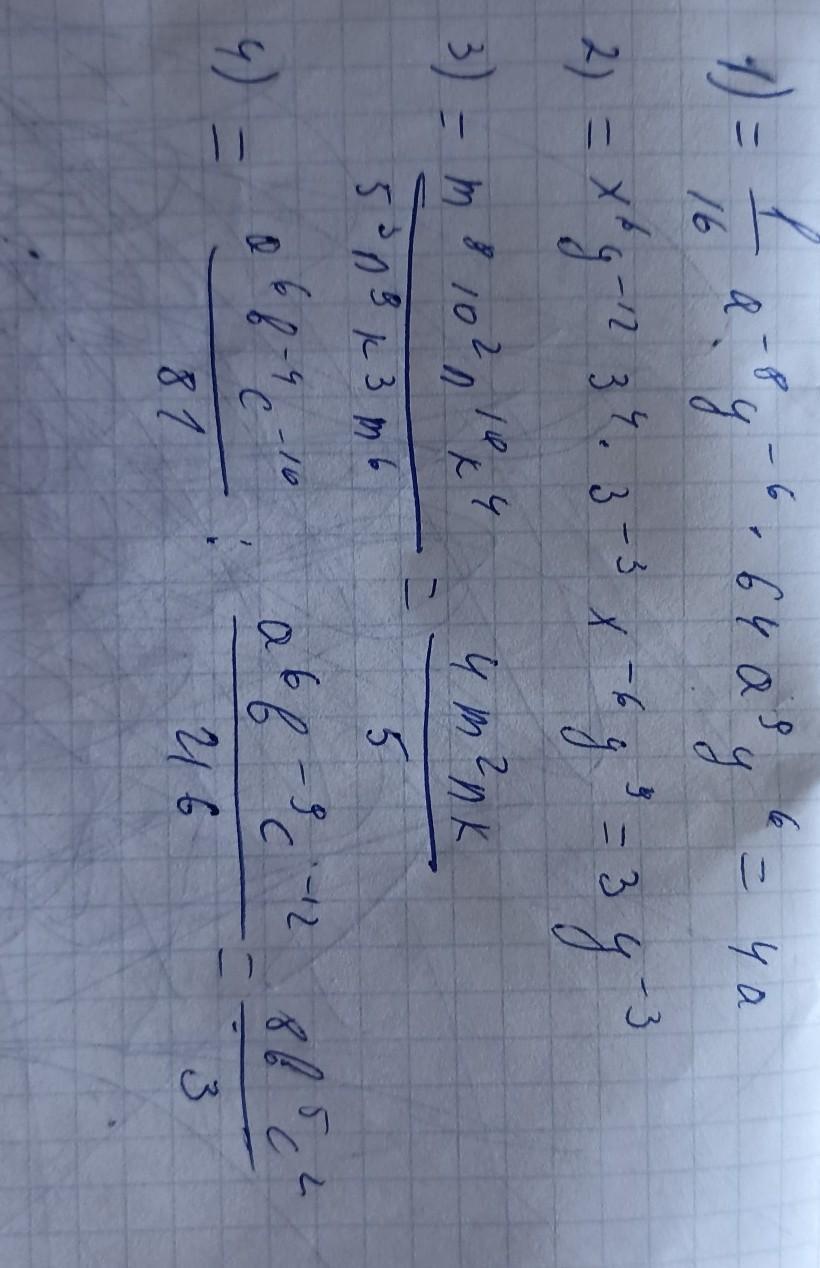 1) = 1/16 a⁻⁸ y⁻⁶ · 64 a⁹ y⁶ = 4a
2) = x⁶ y⁻¹² 3⁴ · 3⁻³ x⁻⁶ y⁹ = 3 y⁻³
3) = m⁸ 10² n¹⁰ k⁴ / 5³ n⁹ k³ m⁶ = 4 m² n k / 5
4) = a⁶ b⁻⁴ c⁻¹⁰ / 81 : a⁶ b⁻⁹ c⁻¹² / 216 = 8 b⁵ c² / 3